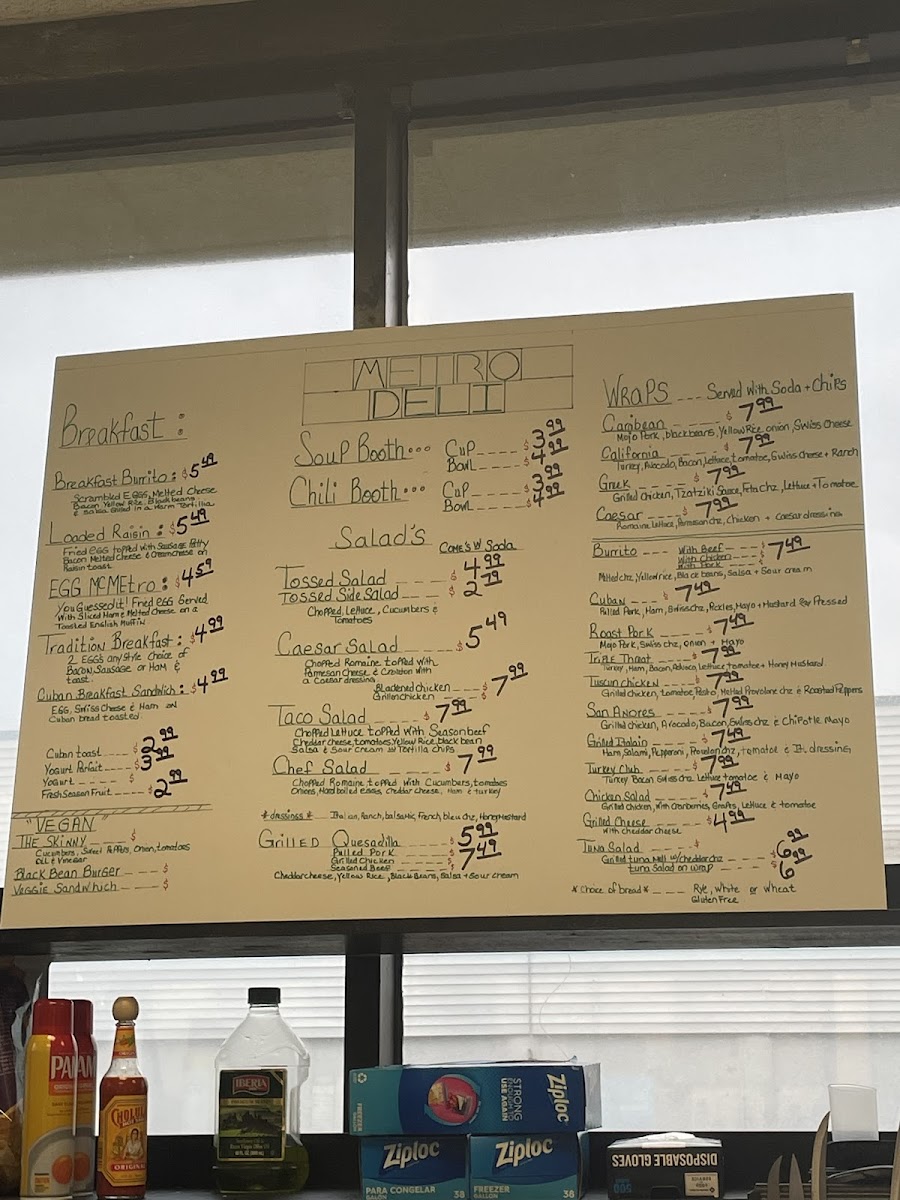 METRO
DELI
Breakfast:
Breakfast Burrito: $5 49
Scrambled EGGS, Melted Cheese
Bacon Yellow Rice, Black beans
& Salsa Grilled in a Warm Tortilla
Loaded Raisin: $5 49
Fried egg topped with Sausage Patty
Bacon Melted Cheese & Creamcheese on
Raisin toast
EGG MCMEtro: $4 59
You Guessed it! Fried EGG Served
With Sliced Ham & Melted Cheese on a
Toasted English Muffin
Tradition Breakfast: $4 99
2 EGGS any style Choice of
Bacon, Sausage or Ham &
toast.
Cuban Breakfast Sandwich: $4 99
EGG, Swiss Cheese & Ham on
Cuban bread toasted.
Cuban toast ---- $2 99
Yogurt Parfait ---- $3 99
Yogurt ---- $
Fresh Season Fruit ---- $2 99
"VEGAN"
THE SKINNY ---- $
Cucumbers, Sweet Peppers, Onion, tomatoes
Oil & Vinegar
Black Bean Burger --- $
Veggie Sandwhich --- $
Soup Booth... Cup --- $3 99
Bowl --- $4 99
Chili Booth... Cup --- $3 99
Bowl --- $4 99
Salad's
Come's W/ Soda
Tossed Salad ---- $4 99
Tossed Side Salad ---- $2 79
Chopped, Lettuce, Cucumbers &
Tomatoes
Caesar Salad ---- $5 49
Chopped Romaine topped with
Parmesan Cheese & Crouton with
a Caesar dressing
Blackened chicken ---- $7 99
Grillen chicken
Taco Salad ---- $7 99
Chopped Lettuce topped with Season beef
Cheddar cheese, tomatoes, Yellow Rice, black bean
Salsa & Sour Cream w/ Tortilla Chips
Chef Salad ---- $7 99
Chopped Romaine topped With Cucumbers, tomatoes
Onions, Hard boiled eggs, Cheddar Cheese, Ham & turkey
*dressings* --- Italian, Ranch, balsamic, French, bleu chz, Honey Mustard
GRILLED Quesadilla $5 99
Pulled Pork --- $7 49
Grilled Chicken
Seasoned Beef
Cheddar cheese, Yellow Rice, Black Beans, Salsa + Sour cream
WRAPS --- Served With Soda + Chips
Caribean ---- $7 99
Mojo Pork, black beans, Yellow Rice, onion, Swiss Cheese
California ---- $7 99
Turkey, Avocado, Bacon, Lettuce, tomatoe, Swiss Cheese + Ranch
Greek ---- $7 99
Grilled Chicken, Tzatziki Sauce, Feta chz, Lettuce + Tomatoe
Caesar ---- $7 99
Romaine Lettuce, Parmesan chz, Chicken + Caesar dressing
Burrito --- With Beef --- $7 49
With Chicken
With Pork
Melted chz, Yellow rice, Black beans, Salsa + Sour cream
Cuban ---- $7 49
Pulled Pork, Ham, Swiss chz, Pickles, Mayo + Mustard Pressed
Roast Pork ---- $7 49
Mojo Pork, Swiss chz, onion + Mayo
Triple Threat ---- $7 99
Turkey, Ham, Bacon, Advoca, Lettuce, tomatoe + Honey Mustard
Tuscun Chicken ---- $7 99
Grilled chicken, tomatoe, Pesto, Melted Provolone chz & Roasted Peppers
San Anores ---- $7 99
Grilled Chicken, Avocado, Bacon, Swiss chz & Chipotle Mayo
Grilled Italain ---- $7 49
Ham, Salami, Pepperoni, Provolon chz, tomatoe & It. dressing
Turkey Club ---- $7 99
Turkey Bacon Swiss chz Lettuce tomatoe & Mayo
Chicken Salad ---- $7 49
Grilled Chicken, With Cranberries, Grapes, Lettuce & tomatoe
Grilled Cheese ---- $4 99
With Cheddar Cheese
Tuna Salad ---- $6 99
Grilled tuna Melt w/ cheddar chz
tuna Salad on wrap --- $6 99
* Choice of bread * --- Rye, White or Wheat
Gluten Free
PAM
PAM
CHOLULA
ORIGINAL
IBERIA
PREMIUM BLEND
Ziploc
STRONG
ENOUGH TO
USE AGAIN
FREEZER
Ziploc
PARA CONGELAR
38
Ziploc
FREEZER
GALLON
38
DISPOSABLE GLOVES
500